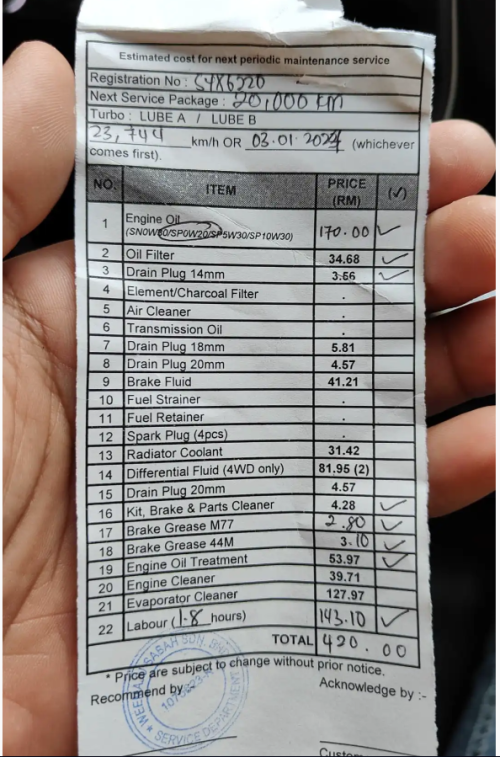 Estimated cost for next periodic maintenance service
Registration No : SYX6220
Next Service Package : 20,000 km
Turbo : LUBE A / LUBE B
23,744 km/h OR 03.01.2024 (whichever
comes first).
NO. ITEM PRICE (RM) (✓)
1 Engine Oil 170.00 ✓
(SN0W20/SP0W20/SP5W30/SP10W30)
2 Oil Filter 34.68 ✓
3 Drain Plug 14mm 3.56 ✓
4 Element/Charcoal Filter .
5 Air Cleaner .
6 Transmission Oil .
7 Drain Plug 18mm 5.81
8 Drain Plug 20mm 4.57
9 Brake Fluid 41.21
10 Fuel Strainer .
11 Fuel Retainer .
12 Spark Plug (4pcs) .
13 Radiator Coolant 31.42
14 Differential Fluid (4WD only) 81.95 (2)
15 Drain Plug 20mm 4.57
16 Kit, Brake & Parts Cleaner 4.28 ✓
17 Brake Grease M77 2.80 ✓
18 Brake Grease 44M 3.10 ✓
19 Engine Oil Treatment 53.97 ✓
20 Engine Cleaner 39.71
21 Evaporator Cleaner 127.97
22 Labour (1.8 hours) 143.10 ✓
TOTAL 420.00
* Price are subject to change without prior notice.
Recommend by Acknowledge by :-
SABAH SDN. BHD
SERVICE DEPARTMENT